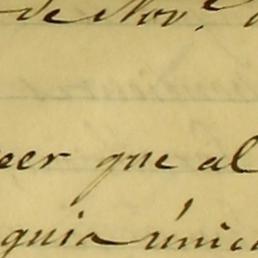 de Nov.e
eer que al
quia única